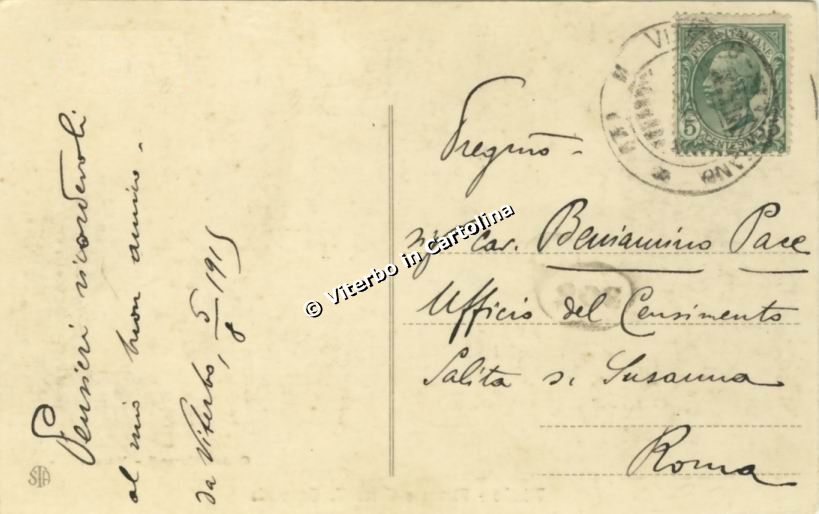 Pensieri ricordevoli
al mio buon amico -
da Viterbo, 5/8 1915
Pregmo -
Sig. Cav. Beniamino Pace
Ufficio del Censimento
Salita S. Susanna
Roma
POSTE ITALIANE
5 5
CENTESIMI
© Viterbo in Cartolina
STA